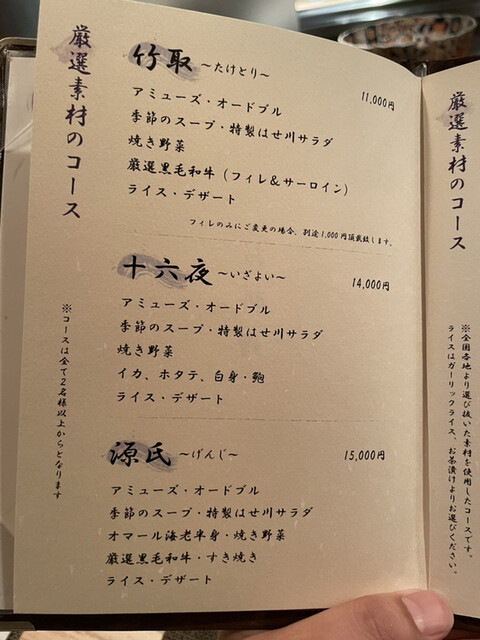 厳選素材のコース
竹取 〜たけとり〜 11,000円
アミューズ・オードブル
季節のスープ・特製はせ川サラダ
焼き野菜
厳選黒毛和牛（フィレ＆サーロイン）
ライス・デザート
フィレのみにご変更の場合、別途1,000円頂戴致します。
十六夜 〜いざよい〜 14,000円
アミューズ・オードブル
季節のスープ・特製はせ川サラダ
焼き野菜
イカ、ホタテ、白身・鮑
ライス・デザート
源氏 〜げんじ〜 15,000円
アミューズ・オードブル
季節のスープ・特製はせ川サラダ
オマール海老半身・焼き野菜
厳選黒毛和牛・すき焼き
ライス・デザート
※コースは全て2名様以上からとなります
厳選素材のコース
※全国各地より選び抜いた素材を使用したコースです。
ライスはガーリックライス、お茶漬けよりお選びください。